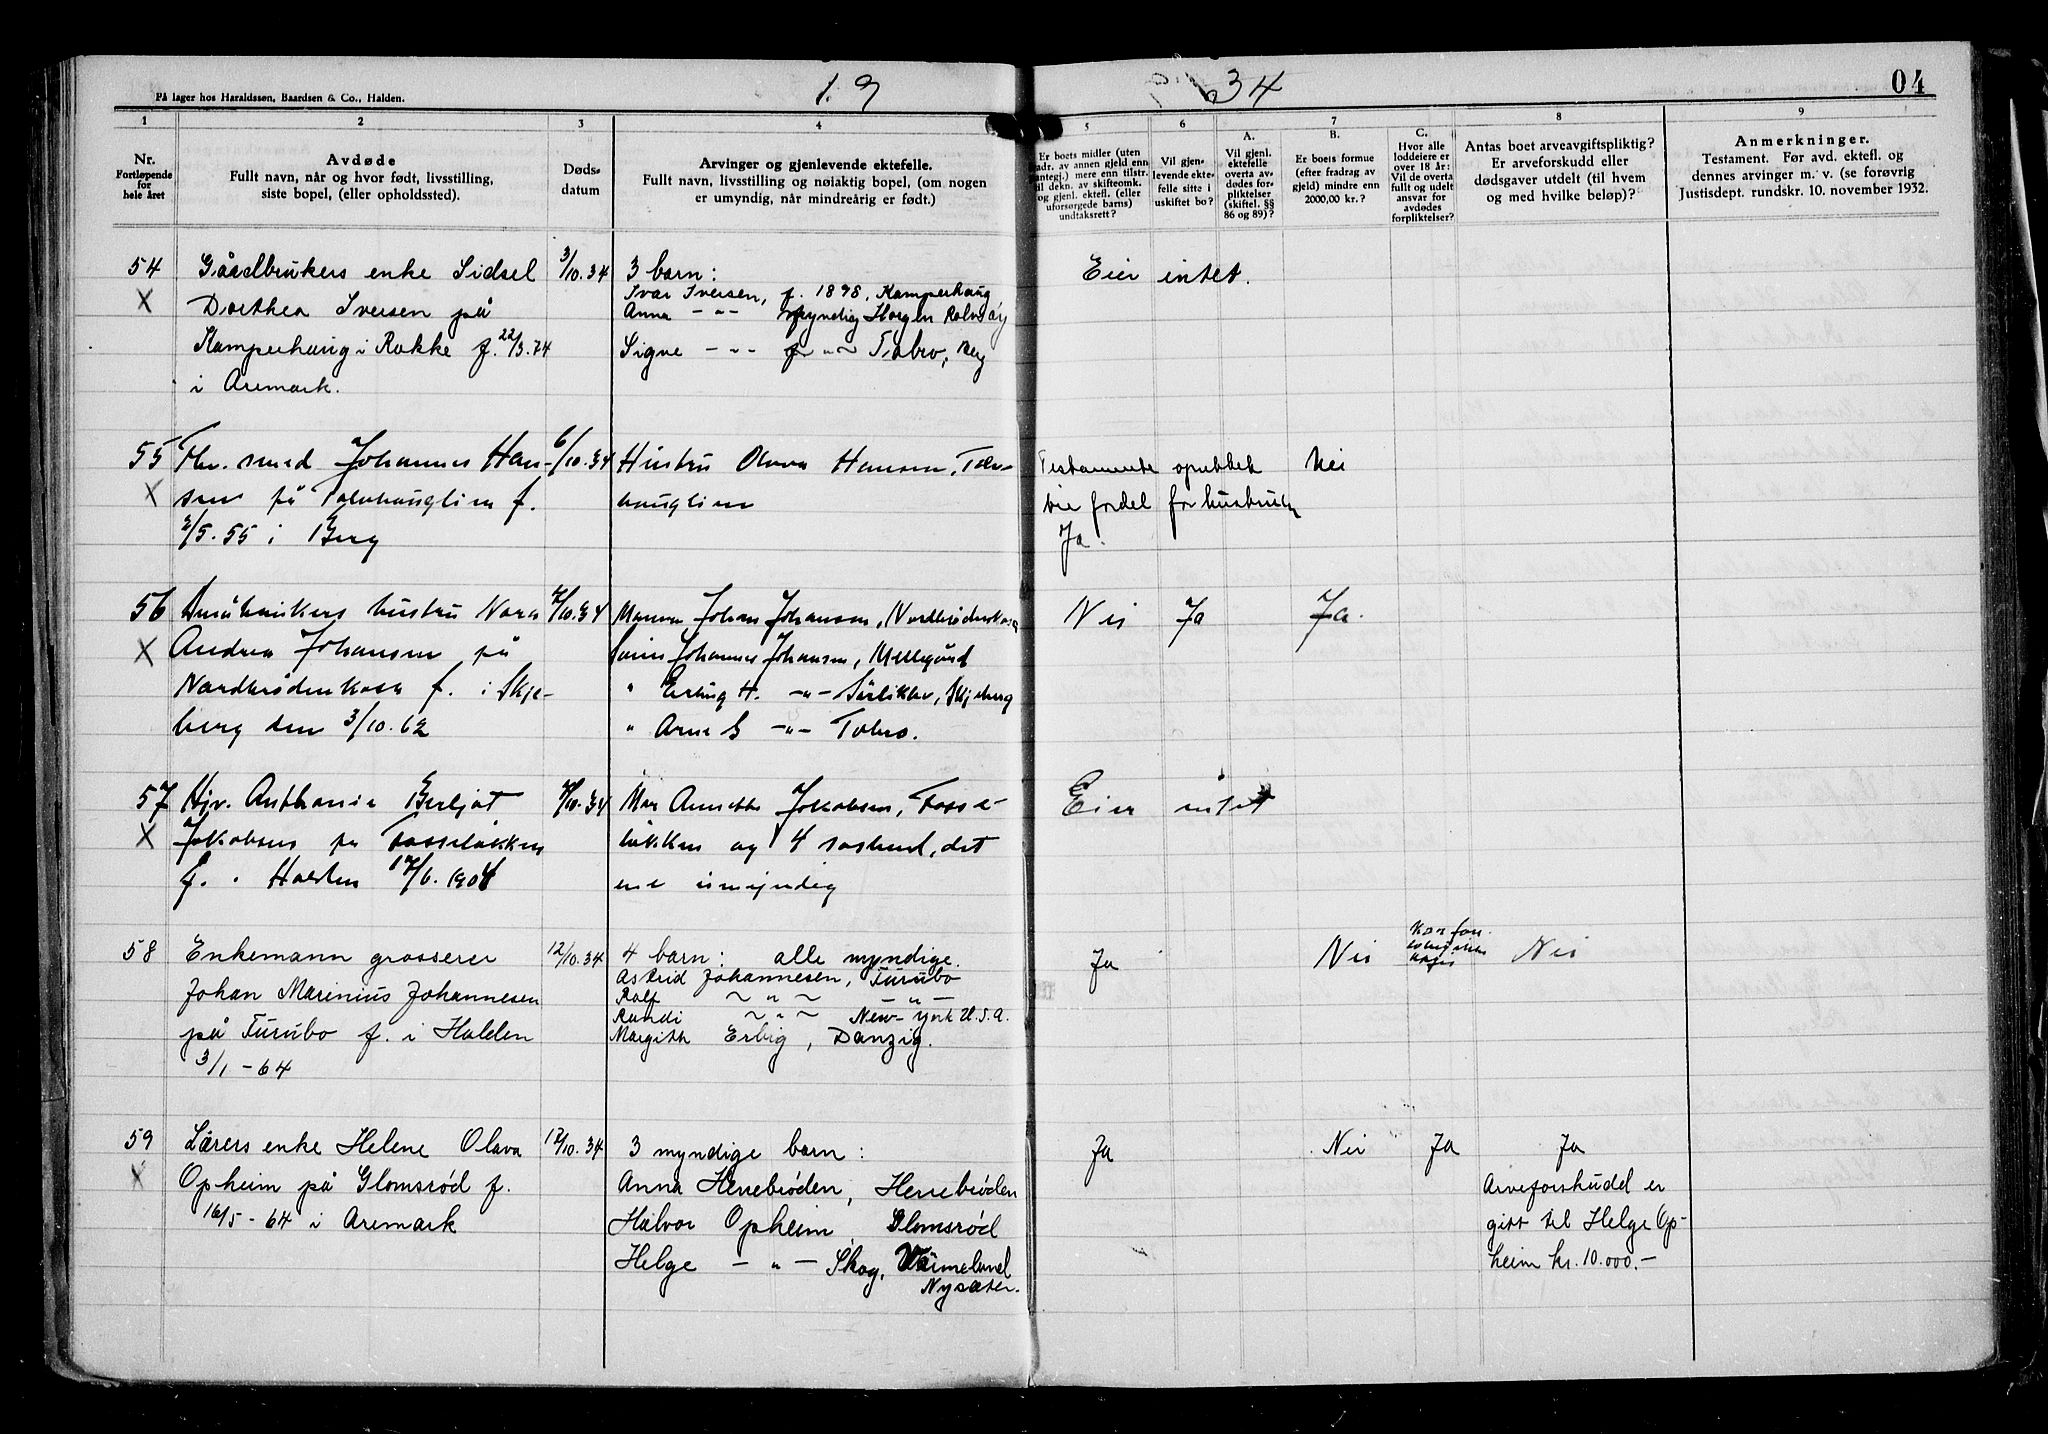 På lager hos Haraldssen, Baardsen & Co., Halden.
19 34
04
1 2 3 4 5 6 7 8 9
Nr.
Fortløpende
for
hele året
Avdøde
Fullt navn, når og hvor født, livsstilling,
siste bopel, (eller opholdssted).
Døds-
datum
Arvinger og gjenlevende ektefelle.
Fullt navn, livsstilling og nøiaktig bopel, (om nogen
er umyndig, når mindreårig er født.)
Er boets midler (uten
adr. av annen gjeld enn
antegj.) mere enn tilstr.
til dekn. av skifteomk.
og gjenl. ektefl. (eller
uforsørgede barns)
undtaksrett?
Vil gjen-
levende ekte-
felle sitte i
uskiftet bo?
A.
Vil gjenl.
ektefelle
overta av-
dødes for-
pliktelser
(skiftel. §§
86 og 89)?
B.
Er boets formue
(efter fradrag av
gjeld) mindre enn
2000,00 kr.?
C.
Hvor alle
loddeiere er
over 18 år:
Vil de overta
fullt og udelt
ansvar for
avdødes
forpliktelser?
Antas boet arveavgiftspliktig?
Er arveforskudd eller
dødsgaver utdelt (til hvem
og med hvilke beløp)?
Anmerkninger.
Testament. Før avd. ektefl. og
dennes arvinger m. v. (se forøvrig
Justisdept. rundskr. 10. november 1932.
54 Gårdbrukers enke Sidsel 3/10.34 3 barn: Eier intet.
X Dorthea Iversen på Ivar Iversen, f. 1898, Kamperhaug
Anna -"- myndig Horgen Rolvsøy
Kamperhaug i Rokke f. 22/3.74 Signe -"- "~ Tobro, Berg
i Aremark.
55 Fhv. smed Johannes Han- 6/10.34 Hustru Olava Hansen, Tolv- Testamente oprettet Nei
X sen på Tolvhauglien f. hauglien til fordel for hustruen
2/5.55 i Berg Ja.
56 Småbrukers hustru Nora 7/10.34 Mannen Johan Johansen, Nordbrødenkosa Nei Ja Ja.
X Andrea Johansen på Sønn Johannes Johansen, Mellegård
Nordbrødenkosa f. i Skje- " Erling H. -"- Skjeberg
berg den 3/10.62 " Arne G -"- Tobro.
57 Hjv. Anthonie Berljot 7/10.34 Mor Annette Jakobsen, Fosse- Eier intet
X Jakobsen på Fosseløkken løkken og 4 søskend, det
f. i Halden 17/6.1904 ene umyndig
58 Enkemann grosserer 12/10.34 4 barn: alle myndige. Ja Nei Nei
Astrid Johannesen, Furubo
Johan Marinius Johannesen Rolf ~"~ -"-
Randi ~"~ New-York U.S.A.
på Furubo f. i Halden Margith Erbig, Danzig.
3/1-64
59 Lærers enke Helene Olava 12/10.34 3 myndige barn: Ja Nei Ja Ja
X Opheim på Glomsrød f. Anna Herrebrøden, Herrebrøden Arveforskudd er
16/5-64 i Aremark Halvor Opheim Glomsrød gitt til Helge Op-
Helge -"- Skog, Värmeland heim kr. 10.000.-
Nysæter.